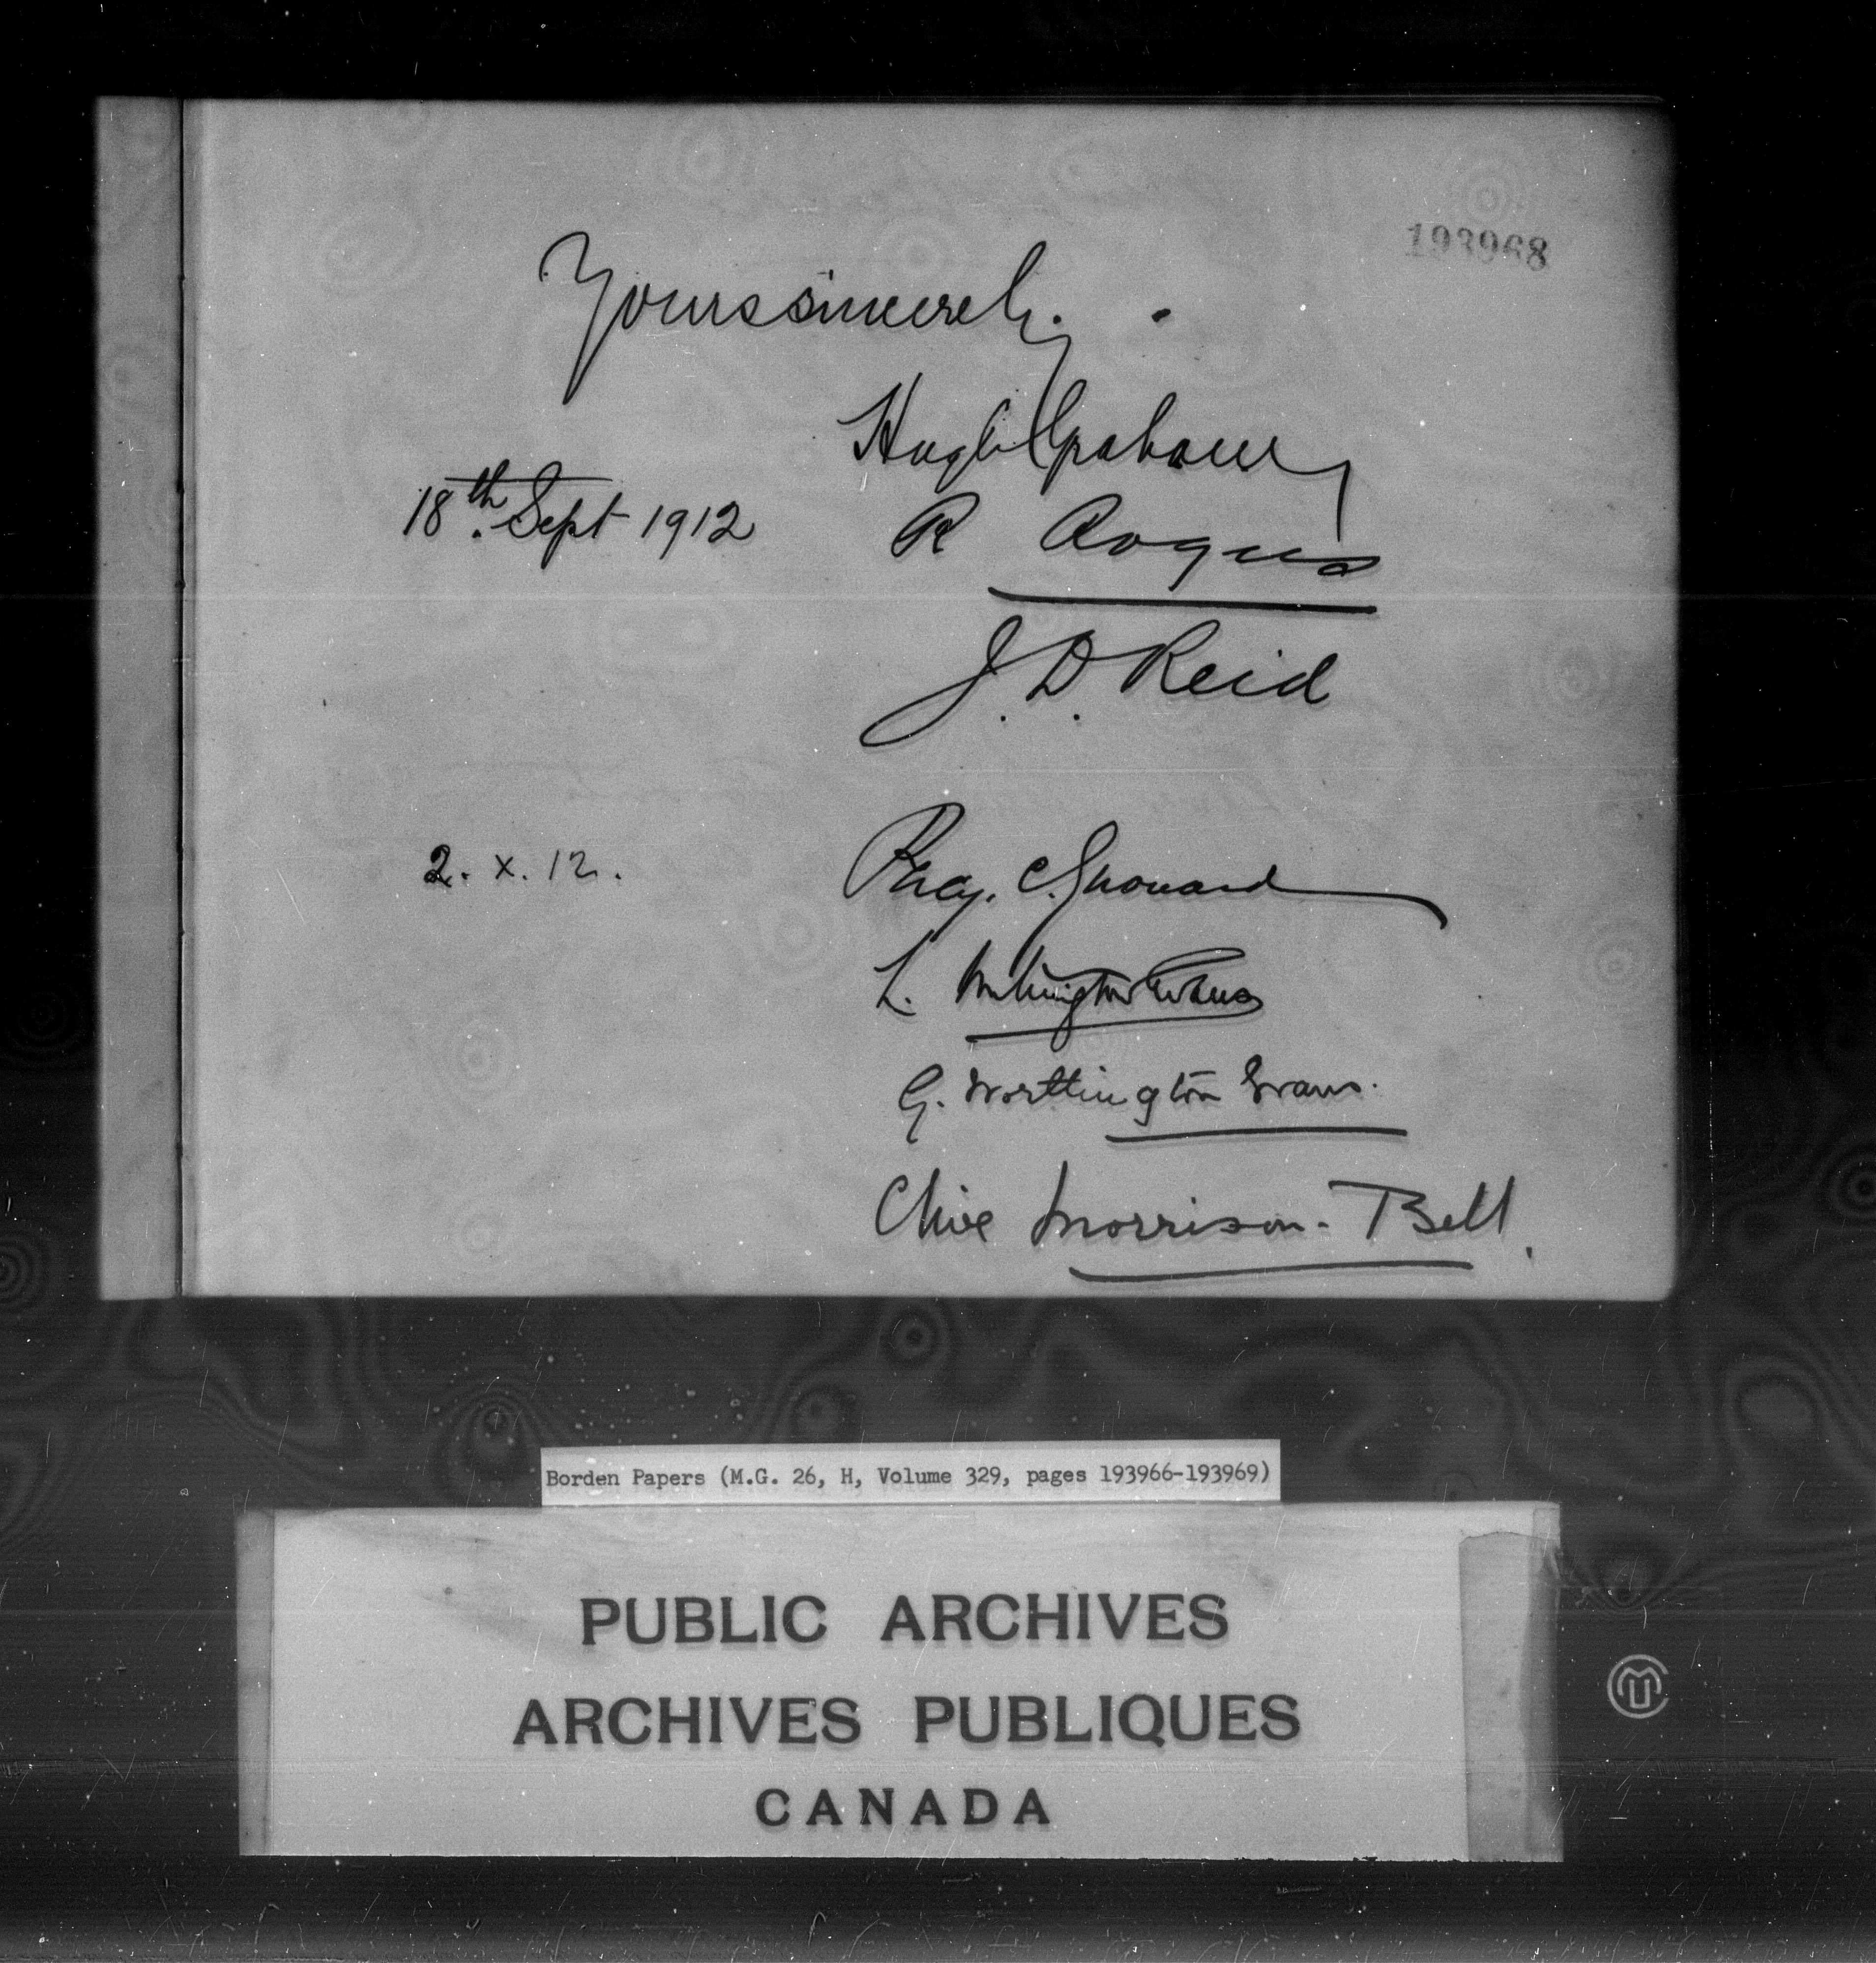 193968
Yours sincerely.
Hugh Graham
18th. Sept 1912
R Rogers
J. D. Reid
2. x. 12.
L. Worthington Evans
G. Worthington Evans.
Clive Morrison-Bell.
Borden Papers (M.G. 26, H, Volume 329, pages 193966-193969)
PUBLIC ARCHIVES
ARCHIVES PUBLIQUES
CANADA